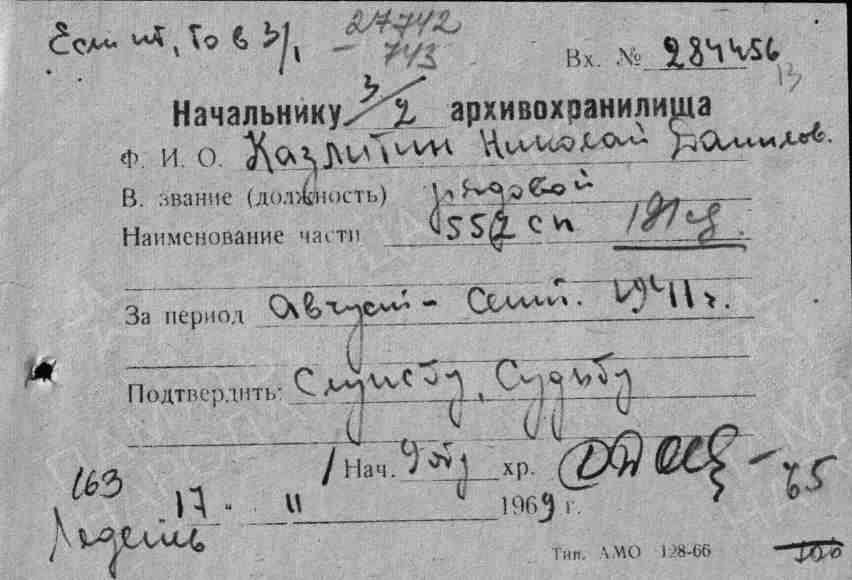 Если нет, то в 3/1 27742
- 743
Вх. № 284456
13
Начальнику 3/2 архивохранилища
Ф. И. О. Казлитин Николай Данилов.
В. звание (должность) рядовой
Наименование части 552 сп 191 сд.
За период Август - Сент. 1941 г.
Подтвердить: Службу, Судьбу
Нач. хр.
163
17. 11 1969 г.
65
Тип. АМО 128-66